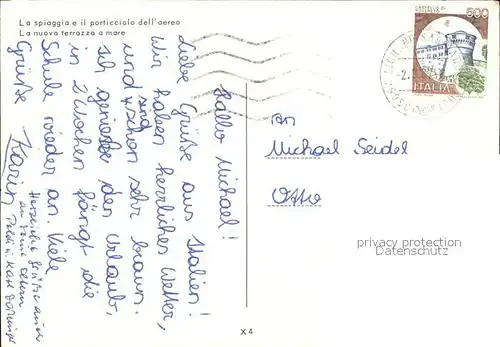 La spiaggia e il porticciolo dell'aereo
La nuova terrazza a mare
500
ITALIA
Hallo Michael!
Liebe Grüße aus Italien!
Wir haben herrliches Wetter,
und sind schon sehr braun.
Ich genieße den Urlaub,
in 2 Wochen fängt die
Schule wieder an. Viele
Grüße
Karin
Herzliche Grüße auch
an Deine Eltern
An
Michael Seidel
Otto
privacy protection
Datenschutz
X 4